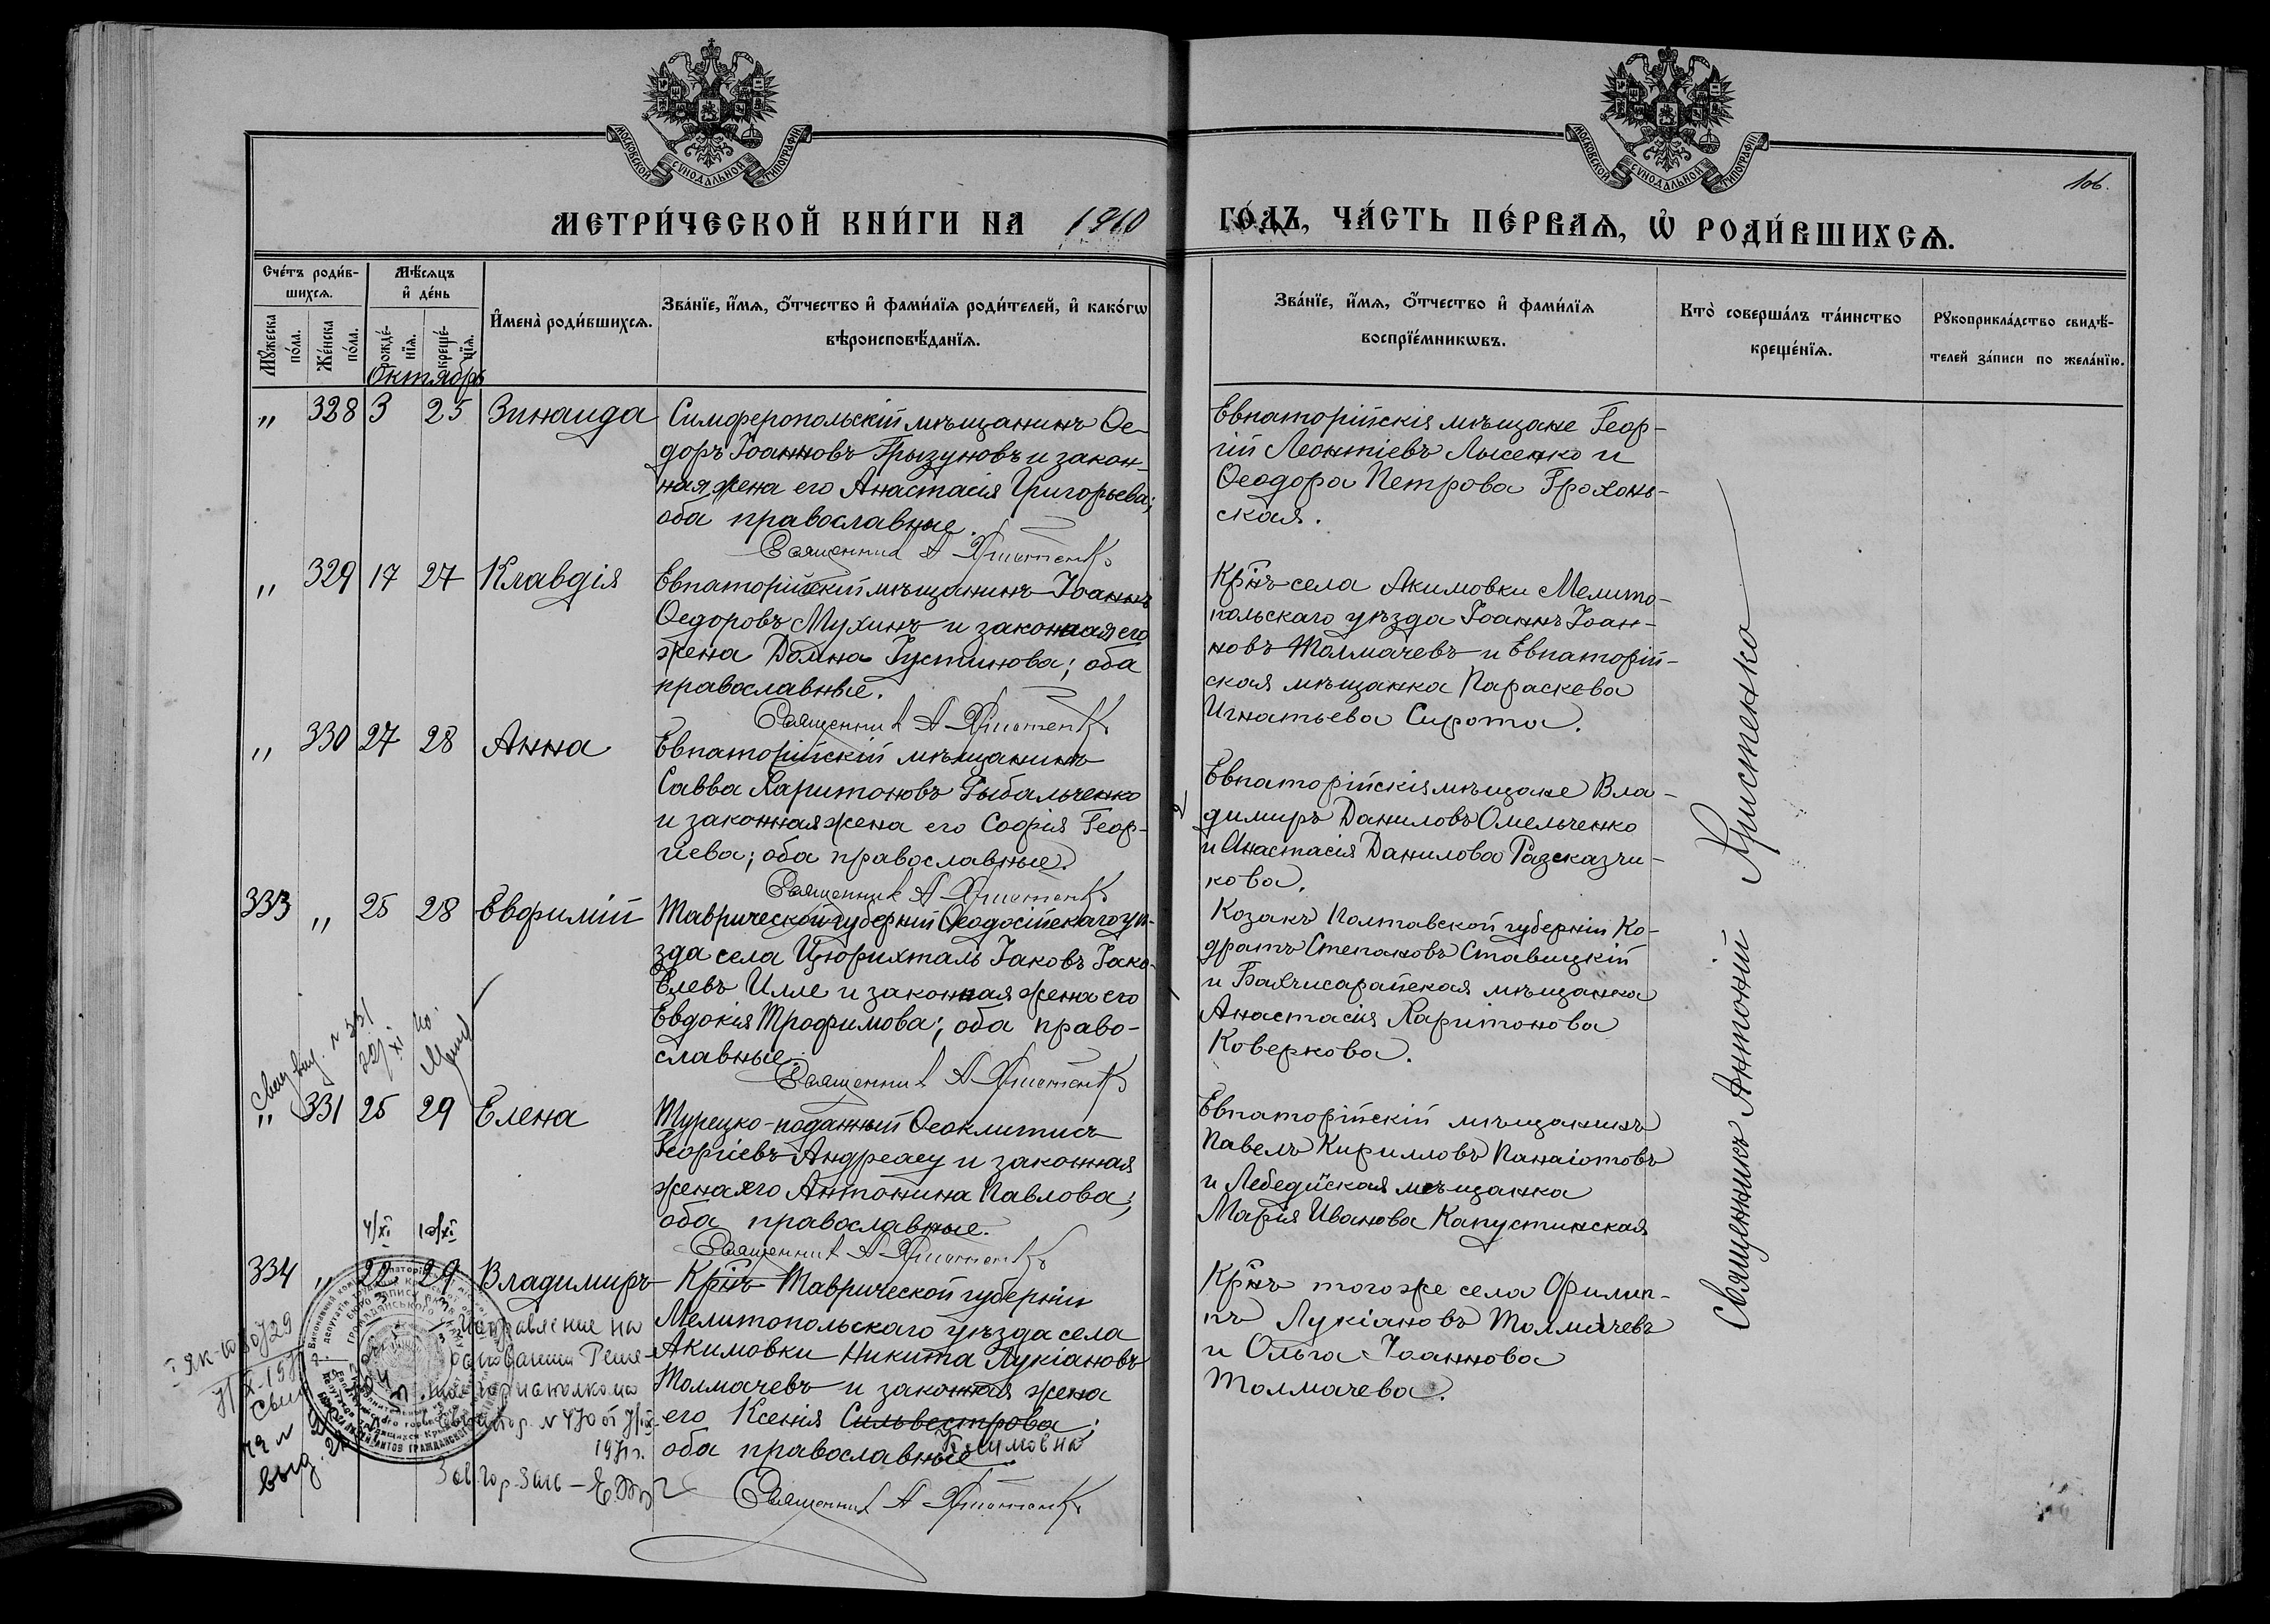 МОСКОВСКОЙ СУНОДАЛЬНОЙ ТИПОГРАФІИ
МОСКОВСКОЙ СУНОДАЛЬНОЙ ТИПОГРАФІИ
106.
МЕТРИ́ЧЕСКОЙ КНИ́ГИ НА 1910 ГО́ДЪ, ЧА́СТЬ ПЕ́РВАѦ, Ѡ҆ РОДИ́ВШИХСѦ.
Сче́тъ роди́в-
шихсѧ.
Мꙋ́жеска
по́ла.
Же́нска
по́ла.
Мѣ́сѧцъ
и҆ де́нь
рожде́-
нїѧ.
креще́-
нїѧ.
Октябрь
И҆мена̀ роди́вшихсѧ.
Зва́нїе, и҆́мѧ, ѻ҆́тчество и҆ фами́лїѧ роди́телей, и҆ како́гѡ
вѣроисповѣ́данїѧ.
Зва́нїе, и҆́мѧ, ѻ҆́тчество и҆ фами́лїѧ
воспрїе́мникѡвъ.
Кто̀ соверша́лъ та́инство
креще́нїѧ.
Рꙋкоприкла́дство свидѣ́-
телей за́писи по жела́нїю.
" 328 3 25 Зинаида
Симферопольскій мѣщанинъ Ѳе-
доръ Іоанновъ Грызуновъ и закон-
ная жена его Анастасія Григорьева;
оба православные.
Священник А Христенко
Евпаторійскія мѣщане Геор-
гій Леонтіевъ Лысенко и
Ѳеодора Петрова Грохонь-
ская.
" 329 17 27 Клавдія
Евпаторійскій мѣщанинъ Іоаннъ
Ѳедоровъ Мухинъ и законная его
жена Домна Іустинова; оба
православные.
Священник А Христенко
Крⷭ҇нъ села Акимовки Мелито-
польскаго уѣзда Іоаннъ Іоан-
новъ Толмачевъ и Евпаторій-
ская мѣщанка Параскева
Игнатьева Сирота.
" 330 27 28 Анна
Евпаторійскій мѣщанинъ
Савва Харитоновъ Рыбальченко
и законная жена его Софія Геор-
гіева; оба православные.
Священник А Христенко
Евпаторійскія мѣщане Вла-
димиръ Даниловъ Омельченко
и Анастасія Данилова Разсказчи-
кова.
333 " 25 28 Евфимій
Таврической губерніи Ѳеодосійскаго уѣ-
зда села Цюрихталь Іаковъ Іако-
влевъ Илле и законная жена его
Евдокія Трофимова; оба право-
славные.
Священник А Христенко
Козакъ Полтавской губерніи Ко-
дратъ Степановъ Ставицкій
и Бахчисарайская мѣщанка
Анастасія Харитонова
Коверкова.
" 331 25 29 Елена
Турецко-поданный Ѳеоклитисъ
Георгіевъ Андреасу и законная
жена его Антонина Павлова;
оба православные.
Священник А Христенко
Евпаторійскій мѣщанинъ
Павелъ Кирилловъ Панаіотовъ
и Лебедийская мѣщанка
Марія Иванова Капустинская
334 " 22 29 Владимиръ
Крⷭ҇нъ Таврической губерніи
Мелитопольскаго уѣзда села
Акимовки Никита Лукіановъ
Толмачевъ и законная жена
его Ксенія Сильвестрова;
оба православные
Священник А Христенко
Крⷭ҇нъ того же села Филип-
пъ Лукіановъ Толмачевъ
и Ольга Іоаннова
Толмачева.
Исправление на
основании Реше-
горисполкома
1971 г.
Священникъ Антоній Христенко